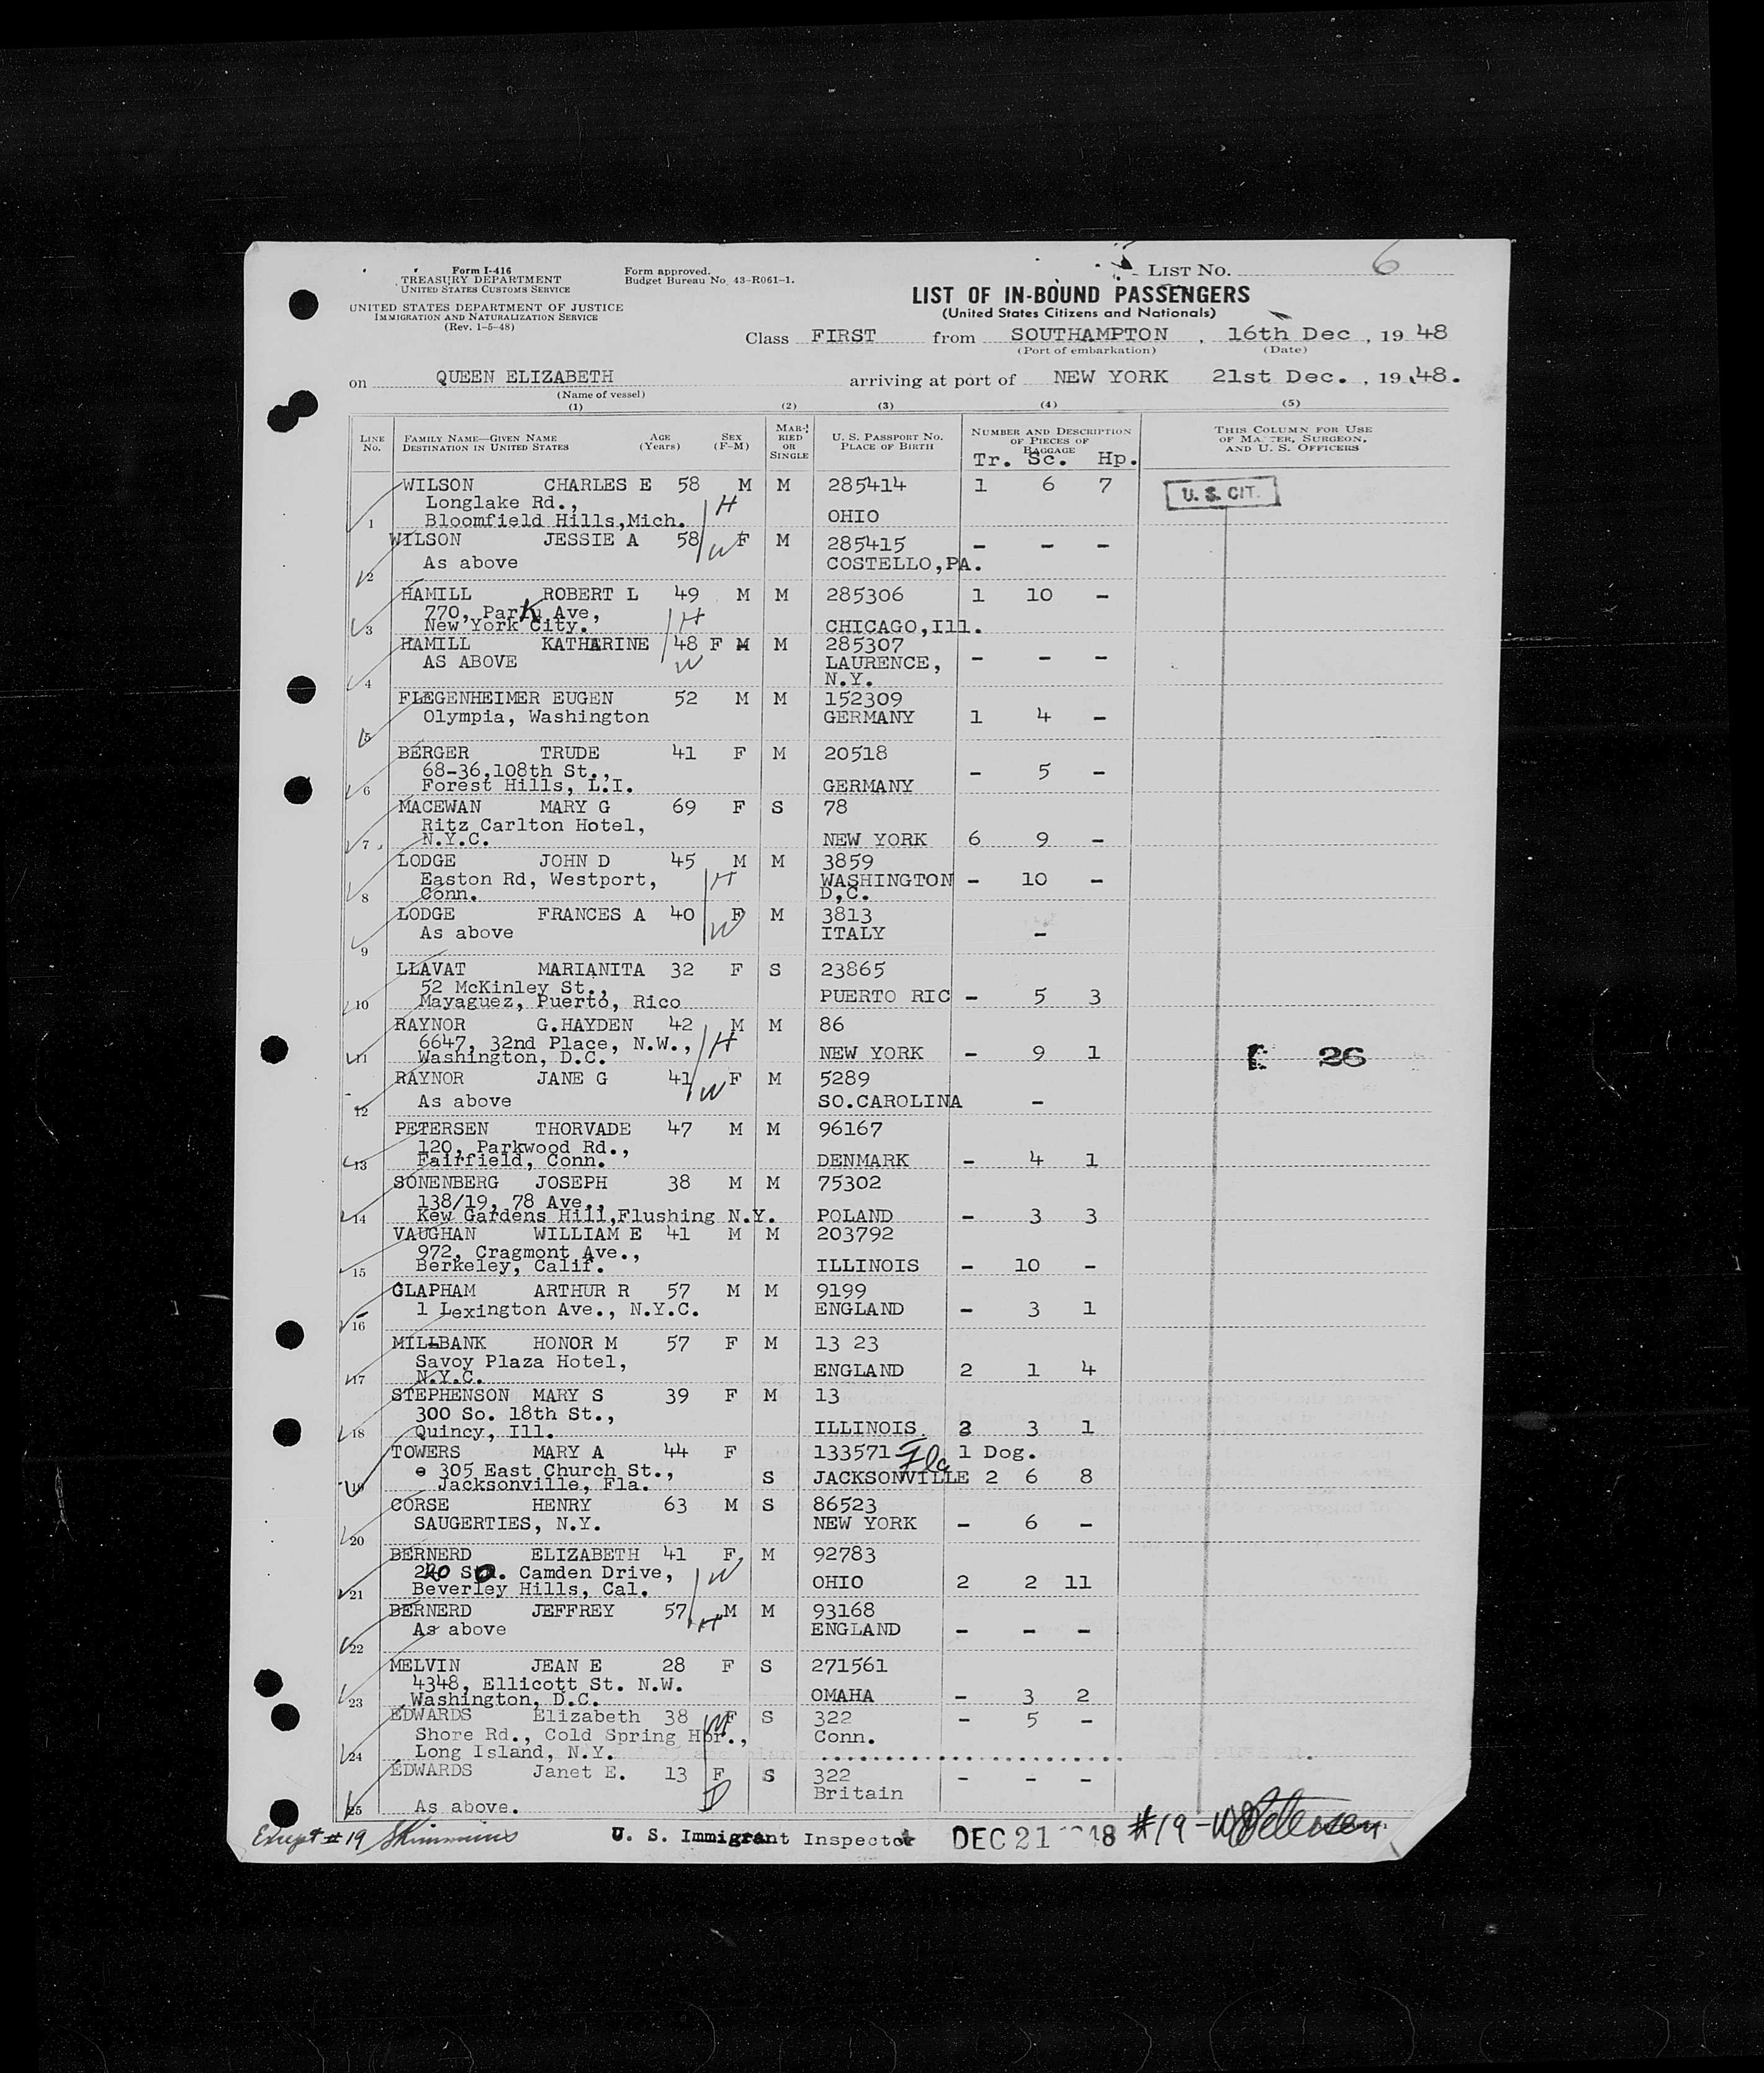 Form I-416
TREASURY DEPARTMENT
UNITED STATES CUSTOMS SERVICE
UNITED STATES DEPARTMENT OF JUSTICE
IMMIGRATION AND NATURALIZATION SERVICE
(Rev. 1-5-48)
Form approved.
Budget Bureau No. 43-R061-1.
LIST No. 6
LIST OF IN-BOUND PASSENGERS
(United States Citizens and Nationals)
Class FIRST from SOUTHAMPTON, 16th Dec, 1948
(Port of embarkation) (Date)
on QUEEN ELIZABETH arriving at port of NEW YORK 21st Dec., 1948.
(Name of vessel)
(1) (2) (3) (4) (5)
LINE No. FAMILY NAME—GIVEN NAME DESTINATION IN UNITED STATES AGE (Years) SEX (F-M) MARRIED OR SINGLE U. S. PASSPORT NO. PLACE OF BIRTH NUMBER AND DESCRIPTION OF PIECES OF BAGGAGE THIS COLUMN FOR USE OF MASTER, SURGEON, AND U. S. OFFICERS
Tr. Sc. Hp.
WILSON CHARLES E 58 M M 285414 1 6 7 U. S. CIT.
Longlake Rd., H
1 Bloomfield Hills,Mich. OHIO
WILSON JESSIE A 58 F M 285415 - - -
W
2 As above COSTELLO,PA.
HAMILL ROBERT L 49 M M 285306 1 10 -
770, Park Ave,
3 New York City. H CHICAGO,Ill.
HAMILL KATHARINE 48 F M M 285307
AS ABOVE W LAURENCE, - - -
4 N.Y.
FLEGENHEIMER EUGEN 52 M M 152309
Olympia, Washington GERMANY 1 4 -
5
BERGER TRUDE 41 F M 20518
68-36,108th St., - 5 -
6 Forest Hills, L.I. GERMANY
MACEWAN MARY G 69 F S 78
Ritz Carlton Hotel,
7 N.Y.C. NEW YORK 6 9 -
LODGE JOHN D 45 M M 3859
Easton Rd, Westport, H WASHINGTON - 10 -
8 Conn. D,C.
LODGE FRANCES A 40 F M 3813
As above W ITALY -
9
LLAVAT MARIANITA 32 F S 23865
52 McKinley St.,
10 Mayaguez, Puerto, Rico PUERTO RIC - 5 3
RAYNOR G.HAYDEN 42 M M 86
6647, 32nd Place, N.W., H
11 Washington, D.C. NEW YORK - 9 1 26
RAYNOR JANE G 41 F M 5289
W
12 As above SO.CAROLINA -
PETERSEN THORVADE 47 M M 96167
120, Parkwood Rd.,
13 Fairfield, Conn. DENMARK - 4 1
SONENBERG JOSEPH 38 M M 75302
138/19, 78 Ave.,
14 Kew Gardens Hill,Flushing N.Y. POLAND - 3 3
VAUGHAN WILLIAM E 41 M M 203792
972, Cragmont Ave.,
15 Berkeley, Calif. ILLINOIS - 10 -
GLAPHAM ARTHUR R 57 M M 9199
1 Lexington Ave., N.Y.C. ENGLAND - 3 1
16
MILLBANK HONOR M 57 F M 13 23
Savoy Plaza Hotel,
17 N.Y.C. ENGLAND 2 1 4
STEPHENSON MARY S 39 F M 13
300 So. 18th St.,
18 Quincy, Ill. ILLINOIS 3 1
TOWERS MARY A 44 F 133571 Fla 1 Dog.
305 East Church St., S JACKSONVILLE 2 6 8
19 Jacksonville, Fla.
CORSE HENRY 63 M S 86523
SAUGERTIES, N.Y. NEW YORK - 6 -
20
BERNERD ELIZABETH 41 F M 92783
220 So. Camden Drive, W
21 Beverley Hills, Cal. OHIO 2 2 11
BERNERD JEFFREY 57 M M 93168
As above H ENGLAND - - -
22
MELVIN JEAN E 28 F S 271561
4348, Ellicott St. N.W.
23 Washington, D.C. OMAHA - 3 2
EDWARDS Elizabeth 38 F S 322 - 5 -
Shore Rd., Cold Spring Hbr., M Conn.
24 Long Island, N.Y.
EDWARDS Janet E. 13 F S 322 - - -
D Britain
25 As above.
Except #19 U. S. Immigrant Inspector DEC 21 1948 #19 -